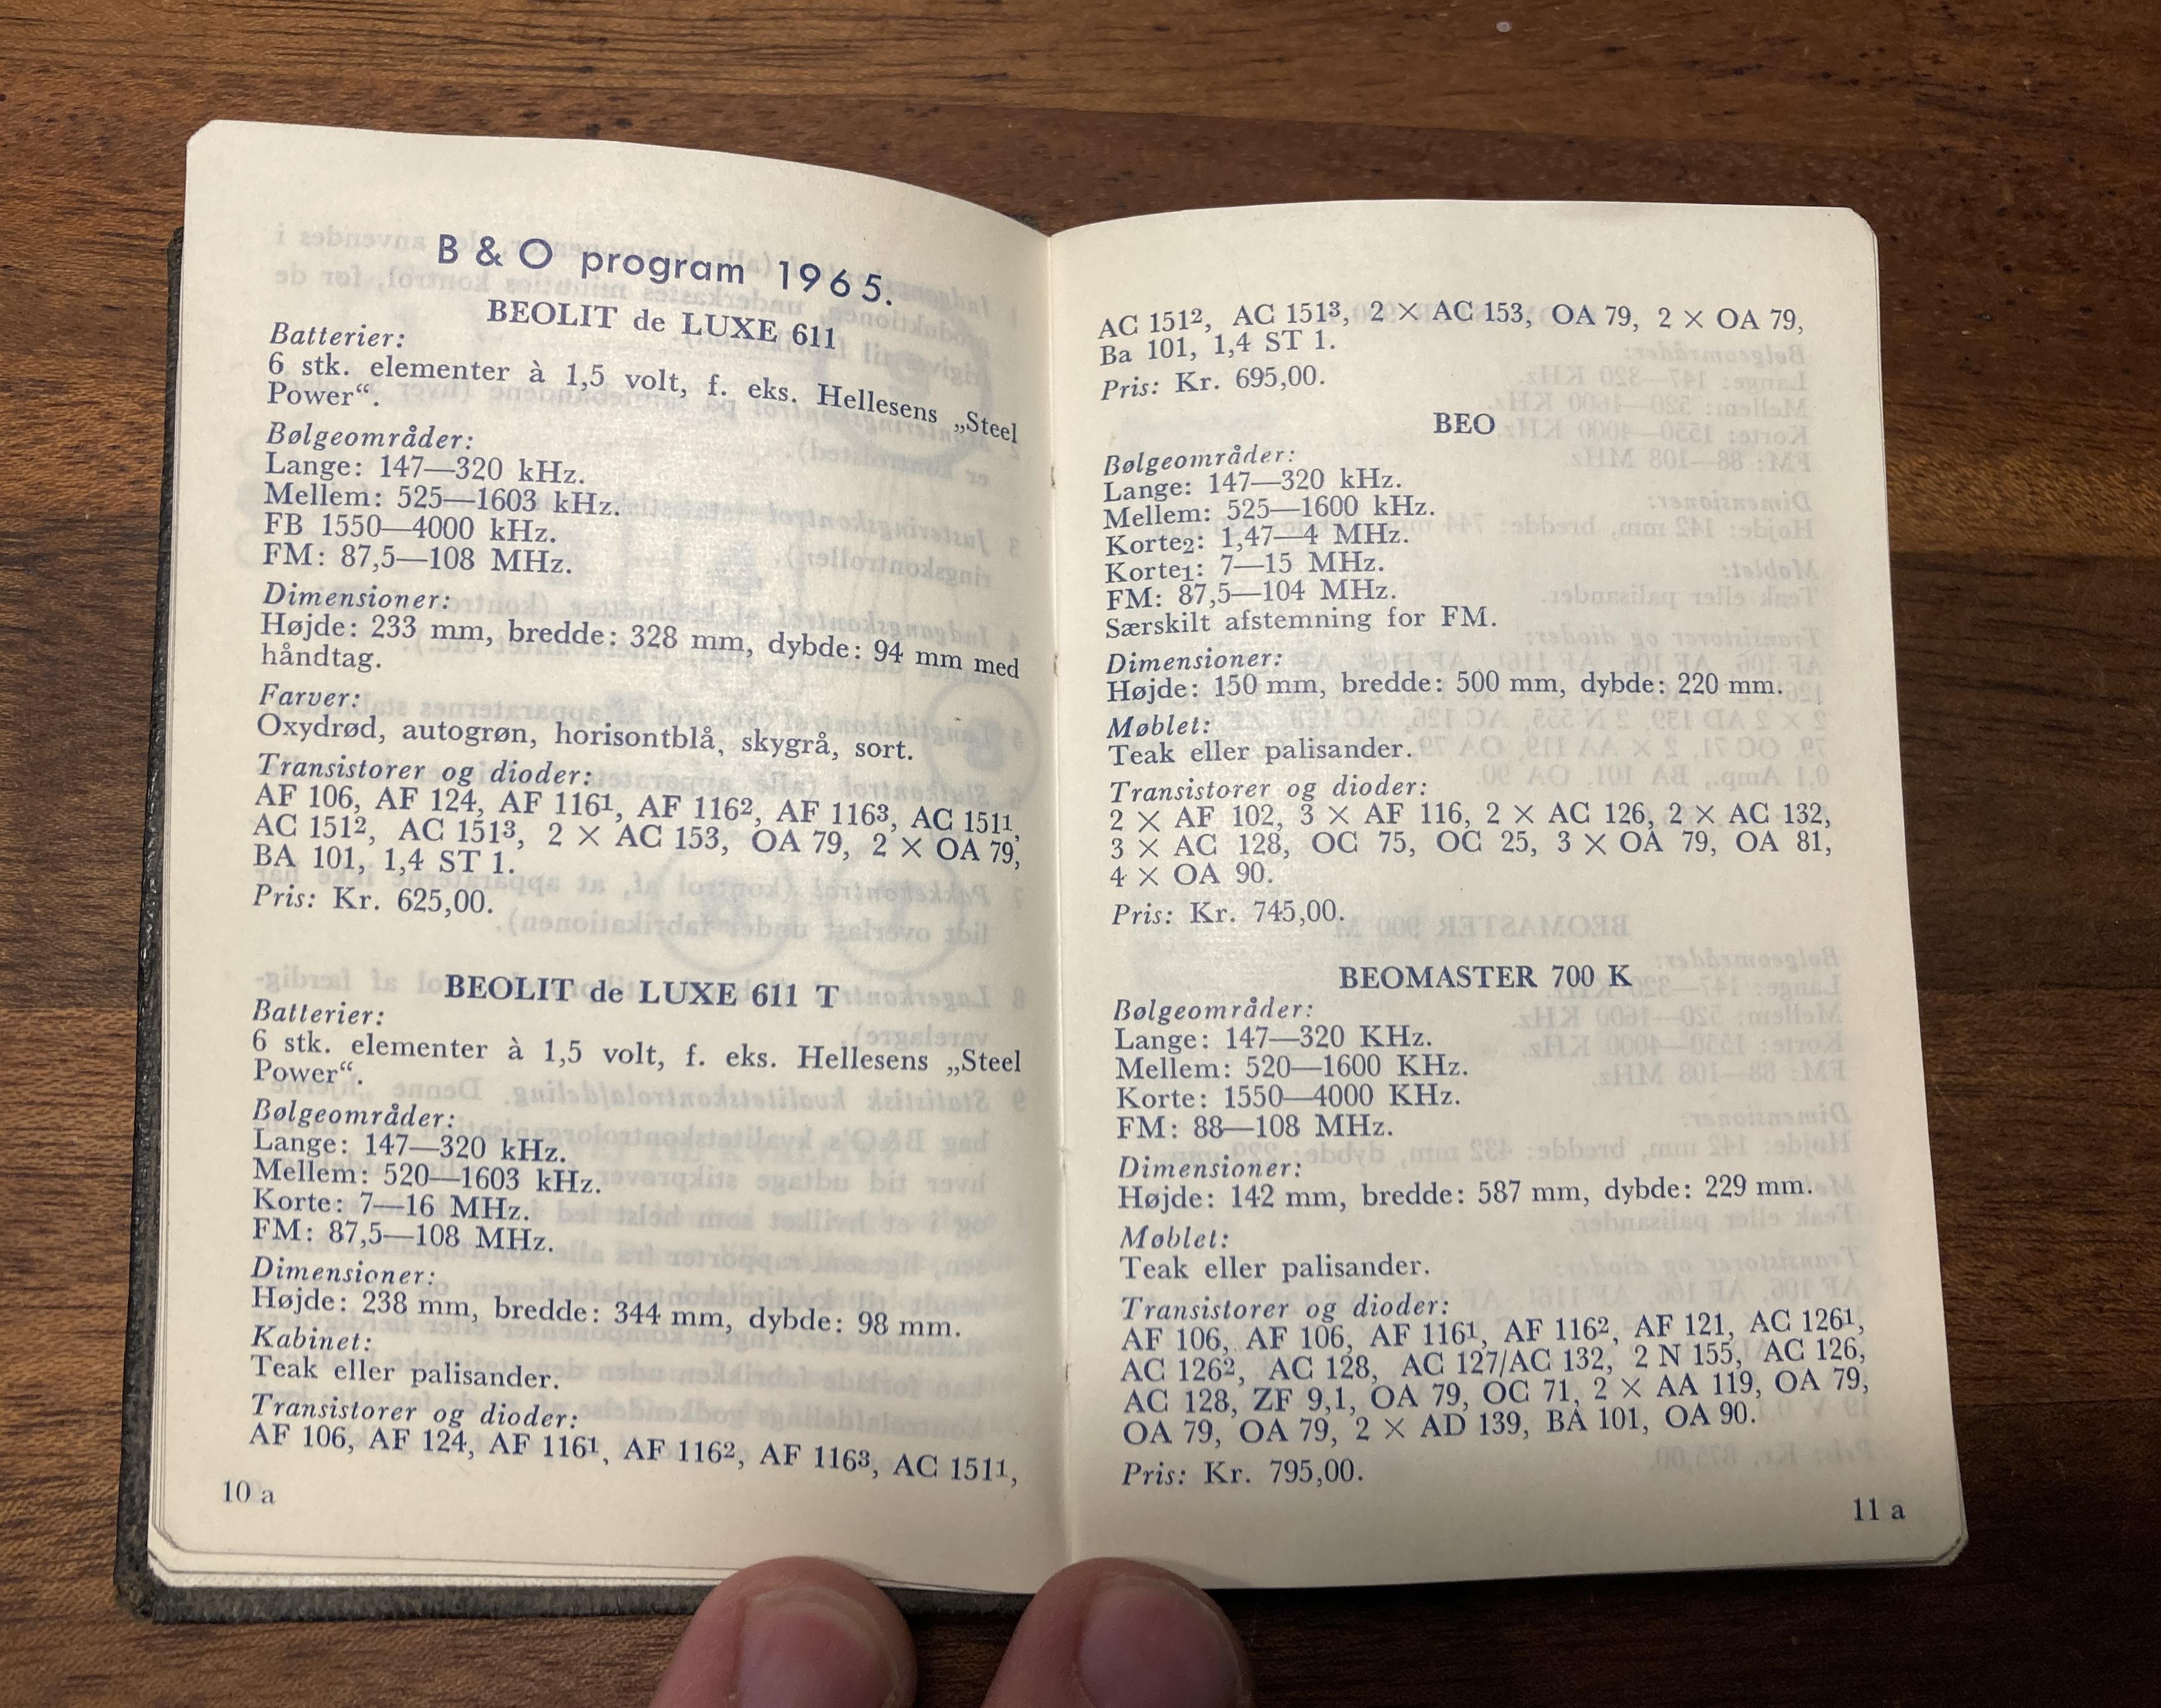 B & O program 1965.
BEOLIT de LUXE 611
Batterier:
6 stk. elementer à 1,5 volt, f. eks. Hellesens „Steel
Power“.
Bølgeområder:
Lange: 147—320 kHz.
Mellem: 525—1603 kHz.
FB 1550—4000 kHz.
FM: 87,5—108 MHz.
Dimensioner:
Højde: 233 mm, bredde: 328 mm, dybde: 94 mm med
håndtag.
Farver:
Oxydrød, autogrøn, horisontblå, skygrå, sort.
Transistorer og dioder:
AF 106, AF 124, AF 116¹, AF 116², AF 116³, AC 151¹,
AC 151², AC 151³, 2 × AC 153, OA 79, 2 × OA 79,
BA 101, 1,4 ST 1.
Pris: Kr. 625,00.
BEOLIT de LUXE 611 T
Batterier:
6 stk. elementer à 1,5 volt, f. eks. Hellesens „Steel
Power“.
Bølgeområder:
Lange: 147—320 kHz.
Mellem: 520—1603 kHz.
Korte: 7—16 MHz.
FM: 87,5—108 MHz.
Dimensioner:
Højde: 238 mm, bredde: 344 mm, dybde: 98 mm.
Kabinet:
Teak eller palisander.
Transistorer og dioder:
AF 106, AF 124, AF 116¹, AF 116², AF 116³, AC 151¹,
10 a
AC 151², AC 151³, 2 × AC 153, OA 79, 2 × OA 79,
Ba 101, 1,4 ST 1.
Pris: Kr. 695,00.
BEO
Bølgeområder:
Lange: 147—320 kHz.
Mellem: 525—1600 kHz.
Korte₂: 1,47—4 MHz.
Korte₁: 7—15 MHz.
FM: 87,5—104 MHz.
Særskilt afstemning for FM.
Dimensioner:
Højde: 150 mm, bredde: 500 mm, dybde: 220 mm.
Møblet:
Teak eller palisander.
Transistorer og dioder:
2 × AF 102, 3 × AF 116, 2 × AC 126, 2 × AC 132,
3 × AC 128, OC 75, OC 25, 3 × OA 79, OA 81,
4 × OA 90.
Pris: Kr. 745,00.
BEOMASTER 700 K
Bølgeområder:
Lange: 147—320 KHz.
Mellem: 520—1600 KHz.
Korte: 1550—4000 KHz.
FM: 88—108 MHz.
Dimensioner:
Højde: 142 mm, bredde: 587 mm, dybde: 229 mm.
Møblet:
Teak eller palisander.
Transistorer og dioder:
AF 106, AF 106, AF 116¹, AF 116², AF 121, AC 126¹,
AC 126², AC 128, AC 127/AC 132, 2 N 155, AC 126,
AC 128, ZF 9,1, OA 79, OC 71, 2 × AA 119, OA 79,
OA 79, OA 79, 2 × AD 139, BA 101, OA 90.
Pris: Kr. 795,00.
11 a